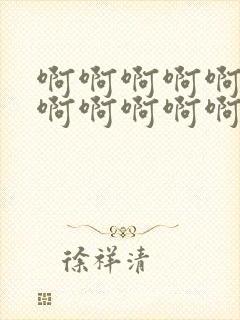 啊啊啊啊啊
啊啊啊啊啊
徐祥清